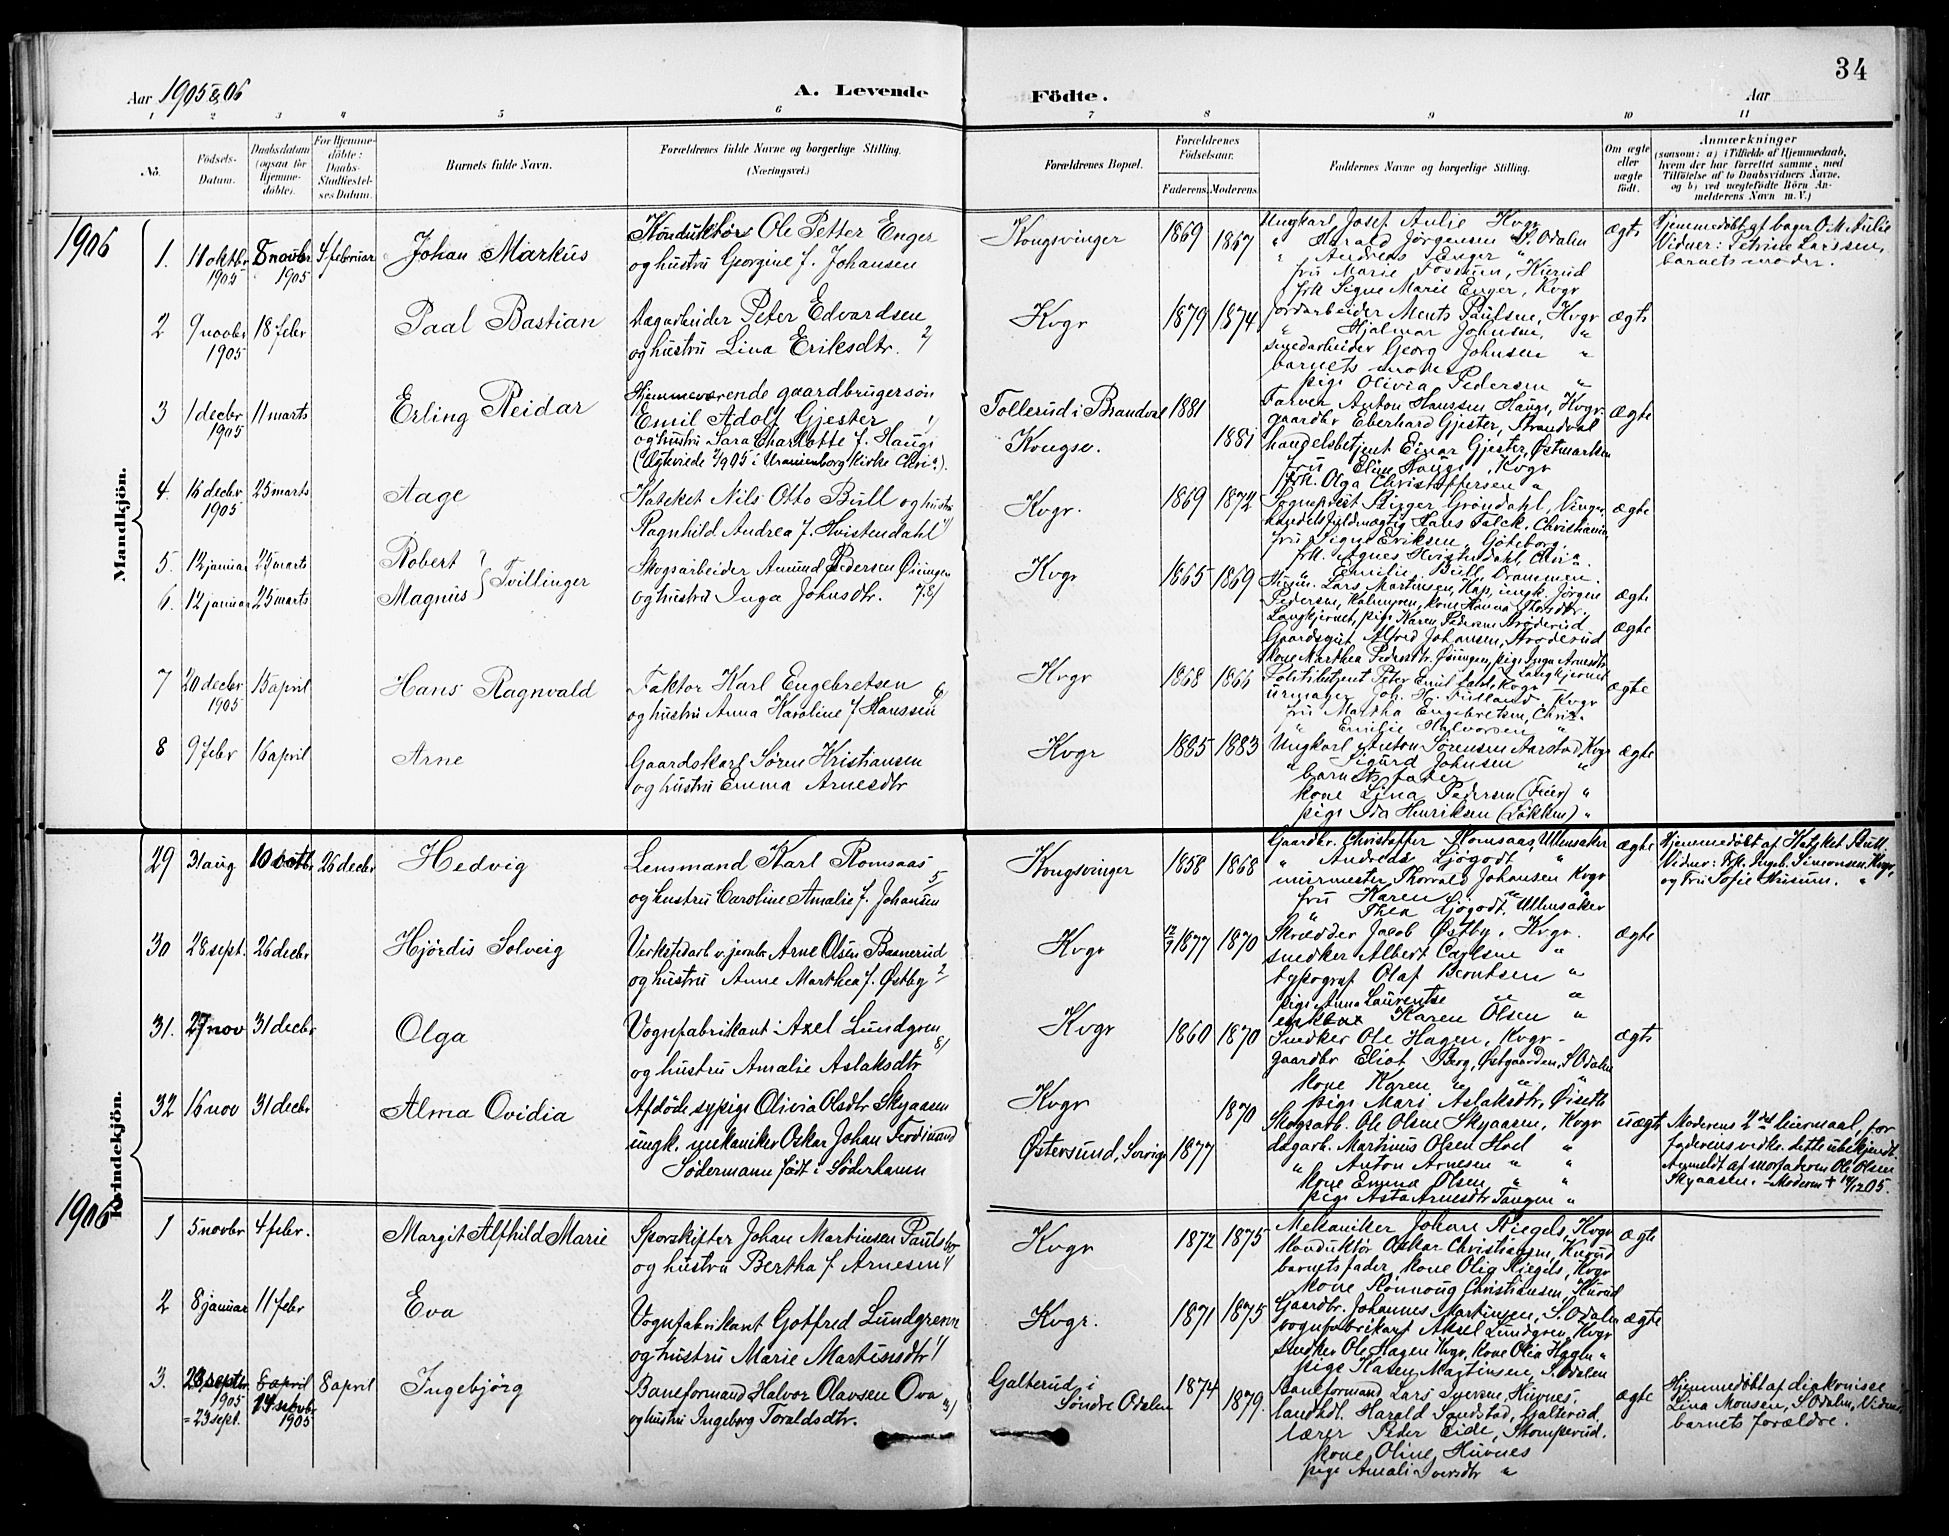 34
Aar 1905 & 06
A. Levende Födte.
Aar
1 2 3 4 5 6 7 8 9 10 11
No.
Födsels-Datum.
Daabsdatum (ogsaa for Hjemme-döbte).
For Hjemme-döbte: Daabs-Stadfæstel-ses Datum.
Barnets fulde Navn.
Forældrenes fulde Navne og borgerlige Stilling. (Næringsvei.)
Forældrenes Bopæl.
Forældrenes Födselsaar.
Faderens. Moderens.
Faddernes Navne og borgerlige Stilling.
Om ægte eller uægte födt.
Anmærkninger
(saasom: a) i Tilfælde af Hjemmedaab,
hvem der har forrettet samme, med
Tilföielse af to Daabsvidners Navne,
og b) ved uægtefödte Börn An-
melderens Navn m. V.)
Mandkjön.
1906
1. 11 oktbr 1905 8 novbr 1905 4 februar Johan Markus
Konduktör Ole Petter Enger
og hustru Georgine f. Johansen
Kongsvinger 1869 1867
Ungkarl Josef Aulie Kvgr
" Harald Jörgensen S. Odalen
" Andreas Enger "
fru Marie Fossum, Kurud
frk Signe Marie Enger, Kvgr
ægte
Hjemmedöbt af bager O. M. Aulie
Vidner: Petrine Larssen,
barnets moder.
2 9 novbr 1905 18 febr Paal Bastian
Dagarbeider Peter Edvardsen
og hustru Lina Eriksdtr. 2/
Kvgr 1879 1874
Jordarbeider Ments Paulsen, Kvgr
" Hjalmar Johnsen, "
smedarbeider Georg Johnsen "
barnets moder
pige Olivia Pedersen "
ægte
3 1 decbr 1905 11 marts Erling Reidar
Hjemmeværende gaardbrugersön
Emil Adolf Gjester 1/
og hustru Sara Charlotte f. Hauge
(Ægteviede 1905 i Uranienborg kirke Chri.a).
Tollerud i Brandval 1881
Kongsv. 1881
Farver Anton Hanssen Hauge, Kvgr
gaardbr Eberhard Gjester, Brandval
handelsbetjent Einar Gjester, Östmarken
fru Eline Hauge, Kvgr
frk. Olga Christoffersen "
ægte
4. 16 decbr 1905 25 marts Aage
Kateket Nils Otto Bull og hustru
Ragnhild Andrea f. Hvistendahl 1/
Kvgr. 1869 1872
Sogneprest Birger Gröndahl, Vinger
handelsfuldmægtig Hans Falck, Christiania
fru Signe Eriksen, Göteborg
frk. Agnes Hvistendahl, Chri.a
" Emilie Bull, Drammen.
ægte
5. 12 januar 25 marts Robert
6. 12 januar 25 marts Magnus } Tvillinger
Skogsarbeider Amund Pedersen Øiungen
og hustru Inga Johnsdtr. 7.8/
Kvgr 1865 1869
Husm. Lars Martinsen, Hap, ungk. Jörgen
Pedersen, Kalmyren, kone Hanna Thorsdtr.
Langkjernet, pige Karen Pedersen Aröderud
Gaardsgut Alfred Johansen, Aröderud
kone Marthea Pedersdtr. Øiungen, pige Inga Arnesdtr
Langkjernet
ægte
ægte
7 20 decbr 1905 15 april Hans Ragnvald
Faktor Karl Engebretsen
og hustru Anna Karoline f Hanssen 6/
Kvgr 1868 1866
Politibetjent Peter Emil Lund, Kvgr
urmager Joh. H. Fulland, Kvgr
fru Martha Engebretsen, Chri.a
" Emilie Halvorsen "
ægte
8 9 febr 16 april Arne
Gaardskarl Sören Kristiansen
og hustru Emma Arnesdtr
Kvgr 1885 1883
Ungkarl Anton Sörensen Aarstad, Kvgr
" Sigurd Johnsen "
barnets fader
kone Lina Pedersen (Feier) "
pige Ida Henriksen (Lökken) "
ægte
Kvindekjön.
29 31 aug 10 octbr 26 decbr Hedvig
Lensmand Karl Romsaas 5/
og hustru Caroline Amalie f. Johansen
Kongsvinger 1858 1868
Gaardbr. Christoffer Romsaas, Ullensaker
" Andreas Ljögodt "
murmester Thorvald Johansen Kvgr
fru Karen " "
" Thea Ljögodt Ullensaker
ægte
Hjemmedöbt af Kateket Bull
Vidner: Frk. Ingeb. Simonsen, Kvgr,
og Fru Sofie Husum. "
30 28 sept. 26 decbr Hjördis Solveig
Verkstedarb v. jernb. Arne Olsen Banerud
og hustru Anne Marthea f. Østby 2/
Kvgr 12/9 1877 1870
Skrædder Jacob Østby, Kvgr.
snedker Albert Carlsen "
typograf Olaf Berntsen "
pige Anna Laurentse "
enke Karen Olsen "
ægte
31. 27 nov 31 decbr Olga
Vognfabrikant Axel Lundgren 8/
og hustru Amalie Aslaksdtr
Kvgr 1860 1870
Snedker Ole Hagen, Kvgr
gaardbr Eliot Berg, Østgaarden, S. Odalen
kone Karen " " "
pige Mari Aslaksdtr, Øiseth
ægte
32 16 nov 31 decbr Alma Ovidia
Afdöde sypige Olivia Olsdtr Skyaasen
ungk. mekaniker Oskar Johan Ferdinand
Södermann födt i Söderhamn
Kvgr 1870
Østersund, Sverige 1877
Skogsarb. Ole Olsen Skyaasen, Kvgr
dagarb. Martinus Olsen Hoel "
" Anton Arnesen " "
kone Emma Olsen " "
pige Asta Arnesdtr Tangen "
uægte
Moderens 2det leiermaal, for
faderens vedk. dette ubekjendt.
Anmeldt af morfaderen Ole Olsen
Skyaasen. - Moderen † 19/12 05.
1906
1 5 novbr 4 febr. Margit Alfhild Marie
Sporskifter Johan Martinsen Paulsbo
og hustru Bertha f Arnesen 1/
Kvgr 1872 1875
Mekaniker Johan Riegels, Kvgr
konduktör Oskar Christiansen, Kurud
barnets fader, kone Olia Riegels, Kvgr
kone Rönnoug Christiansen, Kurud
ægte
2 8 januar 11 febr Eva
Vognfabrikant Gotfred Lundgrenn
og hustru Marie Martinsdtr 1/
Kvgr. 1871 1875
Gaardbr. Johannes Martinsen, S. Odalen
vognfabrikant Aksel Lundgren, Kvgr
snedker Ole Hagen Kvgr, kone Olia Hagen "
pige Karen Martinsen, S. Odalen
ægte
3. 23 septbr 1905 = 23 sept. 8 april 14 novbr 1905 8 april Ingebjörg
Baneformand Halvor Olavsen Ova 3/
og hustru Ingeborg Toraldsdtr.
Galterud i Söndre Odalen 1874 1879.
Baneformand Lars Syversen, Huvnes,
landhdl. Harald Sandstad, Galterud,
lærer Peder Eide, Stomperud.
kone Oline Huvnes
pige Amalie Iversdtr "
ægte
Hjemmedöbt af diakonisse
Lina Monsen, S. Odalen, Vidner:
barnets forældre.